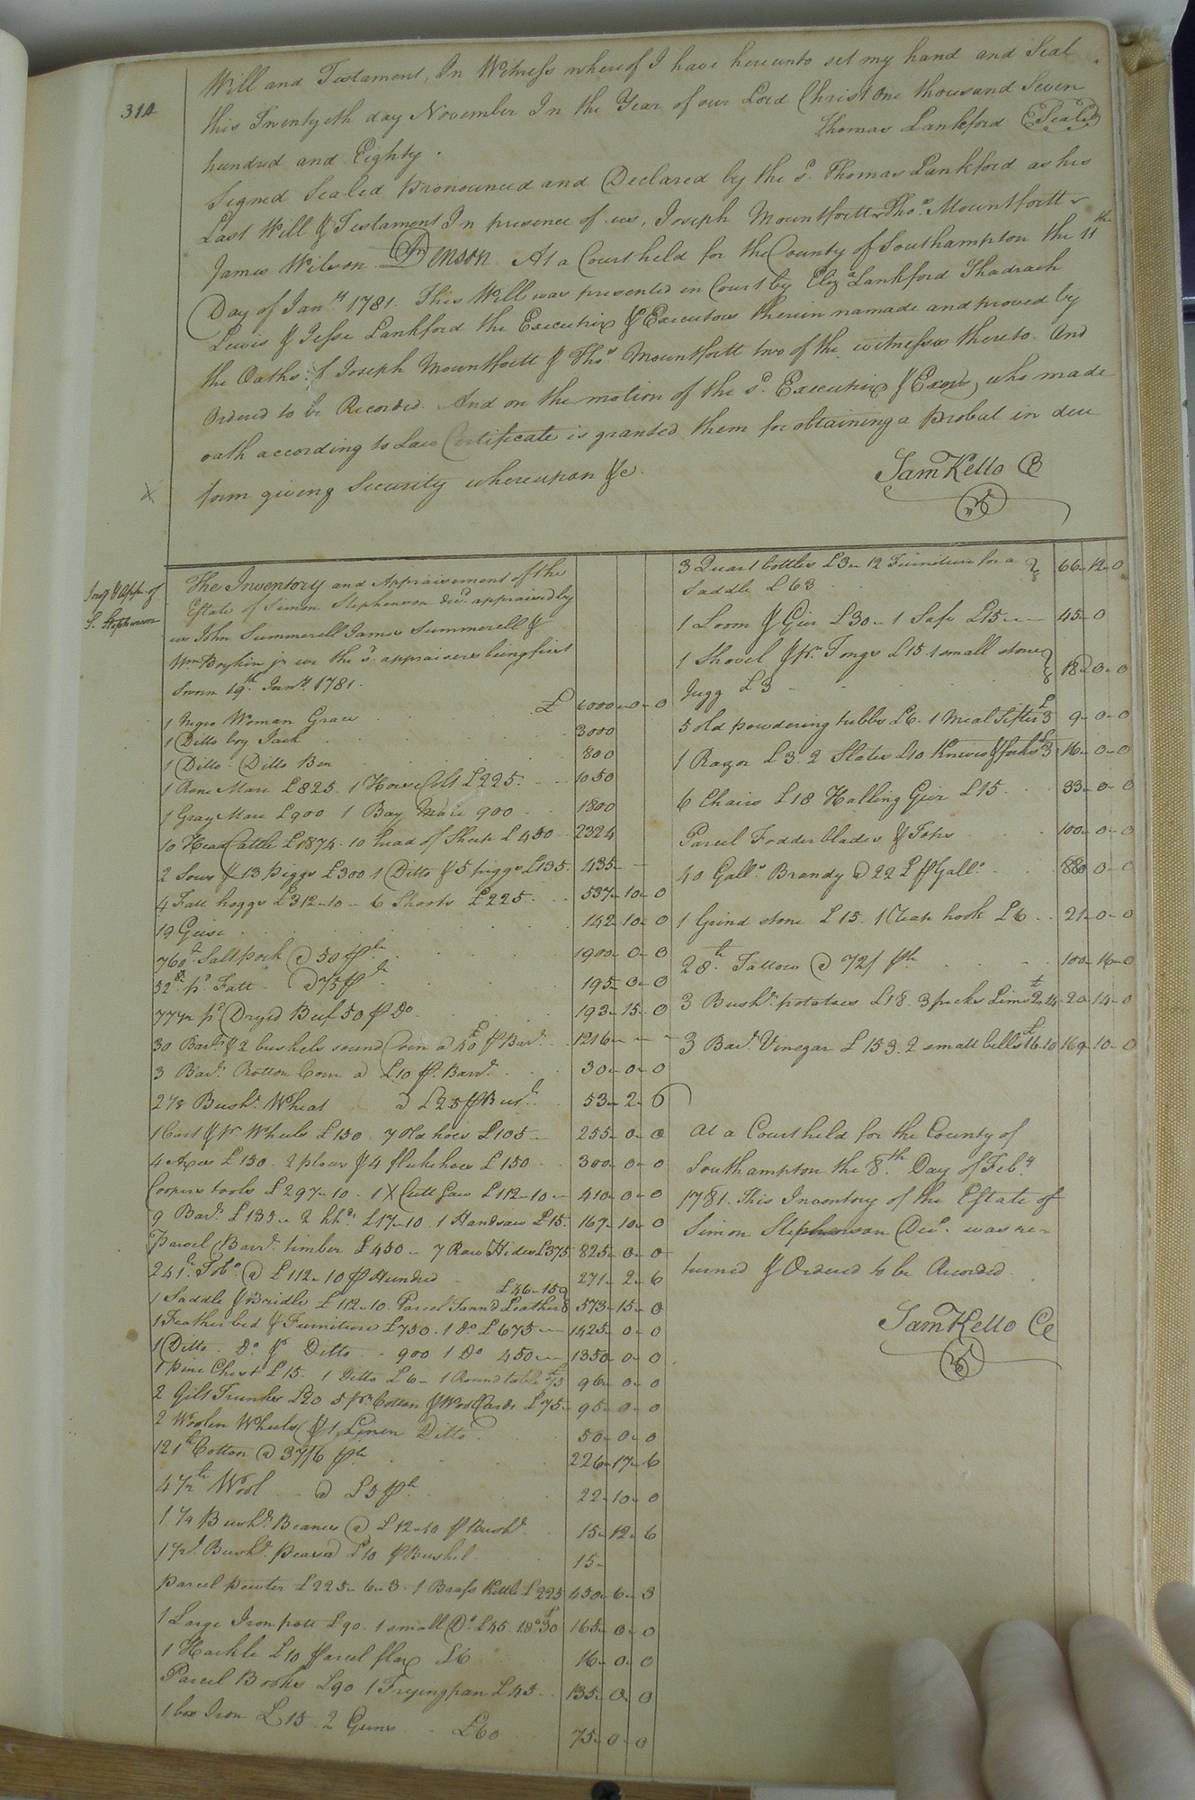 314
Will and Testament, In Witness whereof I have hereunto set my hand and Seal
this Twentyeth day November In the Year of our Lord Christ One thousand Seven
hundred and Eighty.
Thomas Lankford Seal
Signed Sealed pronounced and Declared by the sd. Thomas Lankford as his
Last Will & Testament In presence of us, Joseph Mountfortt Thos. Mountfortt
James Wilson Denson At a Court held for the County of Southampton the 11th
Day of Jany 1781. This Will was presented in Court by Eliza Lankford Shadrach
Lewis & Jesse Lankford the Executrix & Executors therein namade and proved by
the Oaths of Joseph Mountfortt & Thos Mountfortt two of the witnesses thereto. And
Ordered to be Recorded. And on the motion of the sd. Executrix & Exors, who made
oath according to Law Certificate is granted them for obtaining a probat in due
form giving Security whereupon &c.
Sam Kello C
Invy & App. of
S. Stephenson
The Inventory and Appraisement of the
Estate of Simon Stephenson Decd. appraised by
us John Summerell James Summerell &
Wm Boykin jr we the sd. appraisers being first
Sworn 19th Jany 1781.
1 Negro Woman Grace £ 6000-0-0
1 Ditto boy Jack 3000
1 Ditto Ditto Ben 800
1 Rone Mare £825. 1 Horse Colt £225 1050
1 Gray Mare £900 1 Bay Mare 900 1800
10 Head Cattle £1874. 10 head of Sheep £450 2324
2 Sows & 13 Piggs £300 1 Ditto & 5 piggs £135 435
4 Fatt hoggs £312-10 6 Shoots £225 537-10-0
19 Geese 142-10-0
760lb Salt pork @ 50 pr lb 1900-0-0
52lb hs Fatt @ 75 pr lb 195-0-0
77½ hs Dryed Beef 50 pr do 193-15-0
30 Barls & 2 bushels sound Corn @ £40 pr Barl 1216
3 Barl Rotton Corn @ £10 pr Barrl 30-0-0
2⅛ Bushs Wheat @ £25 pr Busl 53-2-6
1 Cart & pr Wheels £150. 7 Old hoes £105 255-0-0
4 Axes £150. 2 plows & 4 fluke hoes £150 300-0-0
Coopers tools £297-10. 1 X Cutt Saw £112-10 410-0-0
9 Barl. £135. 2 hhs £17-10. 1 Handsaw £15. 167-10-0
Parcel Barrl. timber £450 7 Raw Hides £375 825-0-0
241lb Tobo @ £112-10 pr Hundred 271-2-6
£46-15
1 Saddle & Bridle £112-10. Parcel Tannd Leather 573-15-0
1 Feather bed & Furniture £750. 1 do £675 1425-0-0
1 Ditto. Do & Ditto 900 1 Do 450 1350-0-0
1 pine Chest £15. 1 Ditto £6 1 Round table £75 96-0-0
2 Gilt Trunks £20 5 pr Cotton & Wool Cards £75 95-0-0
2 Woolen Wheels & 1 Linen Ditto 50-0-0
121lb Cotton @ 37/6 pr lb 226-17-6
4½lb Wool @ £5 pr lb 22-10-0
1¼ Bushl Beanes @ £12-10 pr Bushl 15-12-6
1½ Bushl. peas @ £10 pr Bushel 15-
parcel pewter £225-6-3. 1 Brass Kettle £225 450-6-3
1 Large Iron pott £90. 1 small Do £45. 1 do £30 165-0-0
1 Hackle £10 parcel flax £6 16-0-0
Parcel Books £90 1 Fryingpan £45 135-0-0
1 box Iron £15. 2 Guns £60 75-0-0
3 Quart bottles £3 12 Furniture for a
Saddle £63 66-12-0
1 Loom & Gier £30 1 Safe £15 45-0
1 Shovel & pr. Tongs £15 1 small stone
Jugg £3 18-0-0
5 old powdering tubbs £6. 1 Meal Sifter £3 9-0-0
1 Razor £3. 2 Slates £10 Knives & forks £3 16-0-0
6 Chairs £18 Halling Gier £15 33-0-0
Parcel Fodder blades & Tops 100-0-0
40 Galls Brandy @ 22£ pr Gall. 880-0-0
1 Grind stone £15. 1 Meat hook £6 21-0-0
28lb Tallow @ 72/ pr lb 100-16-0
3 Bushs. potatoes £18. 3 pecks Lime £2-14 20-14-0
3 Barl. Vinegar £153. 2 small bells £16-10 169-10-0
At a Court held for the County of
Southampton the 8th Day of Feby
1781. This Inventory of the Estate of
Simon Stephenson Decd. was re-
turned & Ordered to be Recorded
Sam Kello Ce